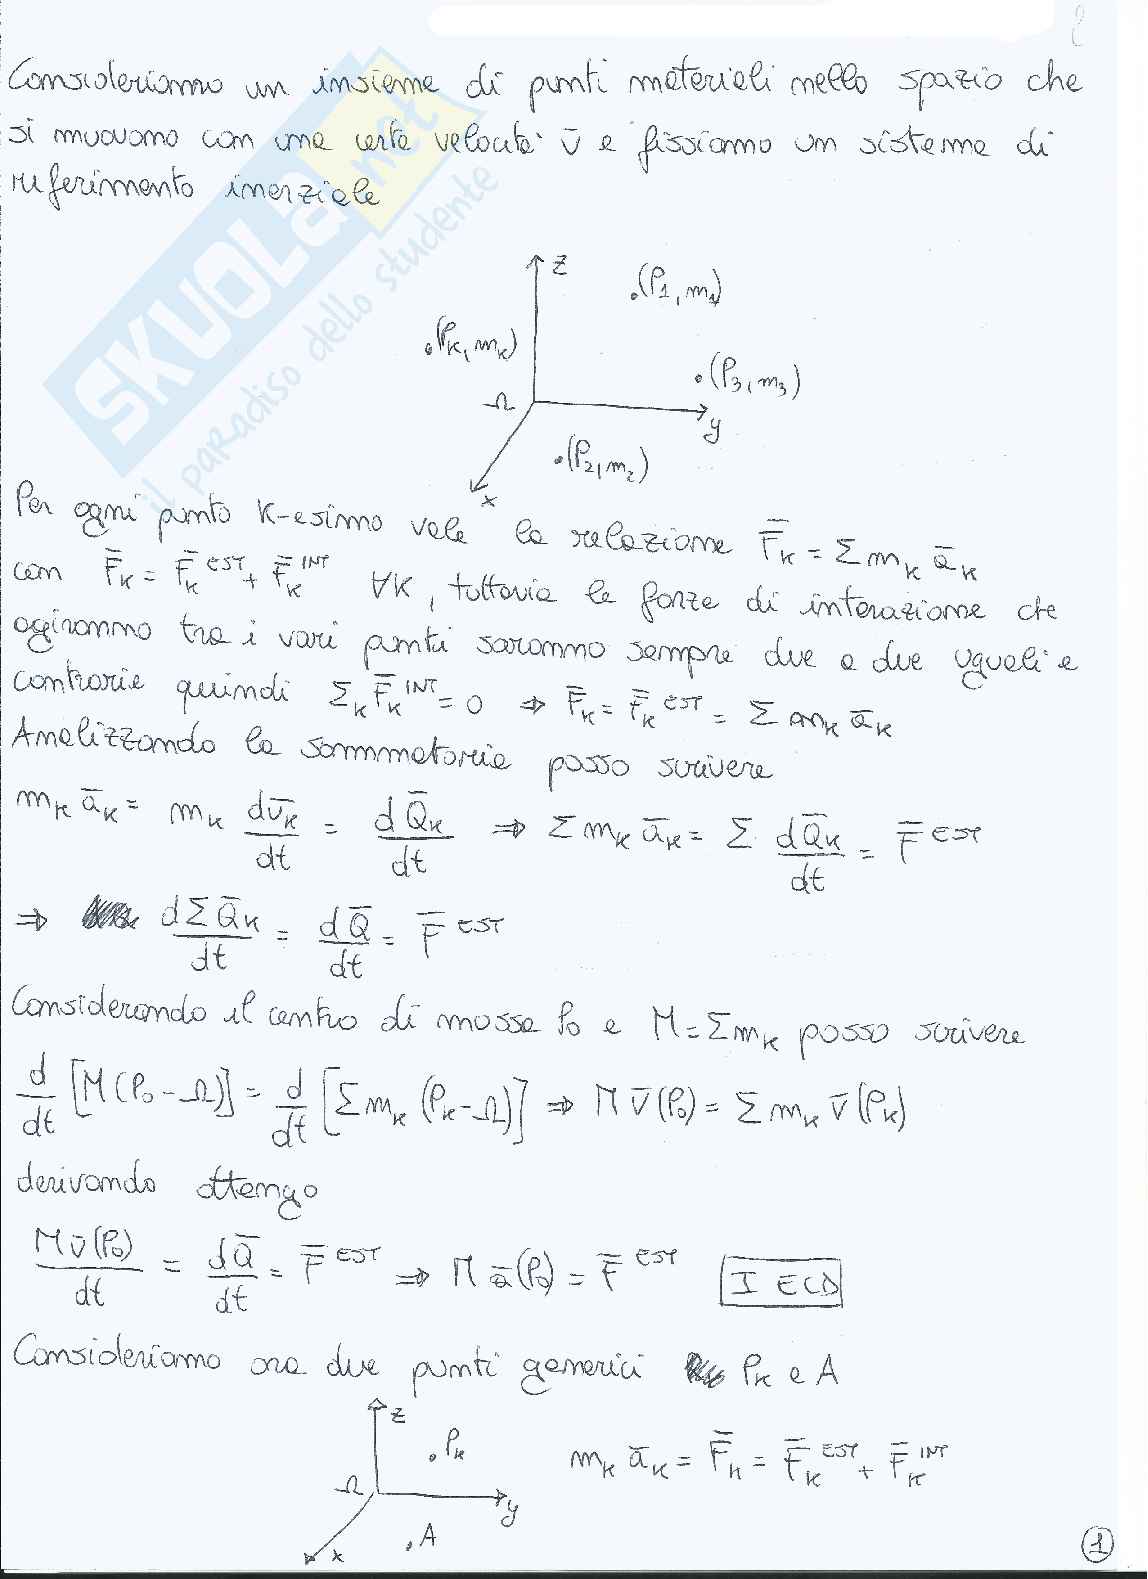 Consideriamo un insieme di punti materiali nello spazio che
si muovono con una certa velocità v̄ e fissiamo un sistema di
riferimento inerziale
SKUOLA.net
il paradiso dello studente
z
(P₁, m₁)
(Pₖ, mₖ)
(P₃, m₃)
Ω
y
(P₂, m₂)
x
Per ogni punto K-esimo vale la relazione F̄ₖ = Σ mₖ āₖ
con F̄ₖ = F̄ₖ^EST + F̄ₖ^INT ∀K, tuttavia le forze di interazione che
agiranno tra i vari punti saranno sempre due a due uguali e
contrarie quindi Σₖ F̄ₖ^INT = 0 ⇒ F̄ₖ = F̄ₖ^EST = Σ mₖ āₖ
Analizzando la sommatoria posso scrivere
mₖ āₖ = mₖ dv̄ₖ/dt = dQ̄ₖ/dt ⇒ Σ mₖ āₖ = Σ dQ̄ₖ/dt = F̄^EST
⇒ dΣQ̄ₖ/dt = dQ̄/dt = F̄^EST
Considerando il centro di massa P₀ e M = Σmₖ posso scrivere
d/dt [M(P₀ - Ω)] = d/dt [Σ mₖ (Pₖ - Ω)] ⇒ M v̄(P₀) = Σ mₖ v̄(Pₖ)
derivando ottengo
M v̄(P₀)/dt = dQ̄/dt = F̄^EST ⇒ M ā(P₀) = F̄^EST I ECD
Consideriamo ora due punti generici Pₖ e A
z
Pₖ
mₖ āₖ = F̄ₖ = F̄ₖ^EST + F̄ₖ^INT
Ω
y
A
x
1